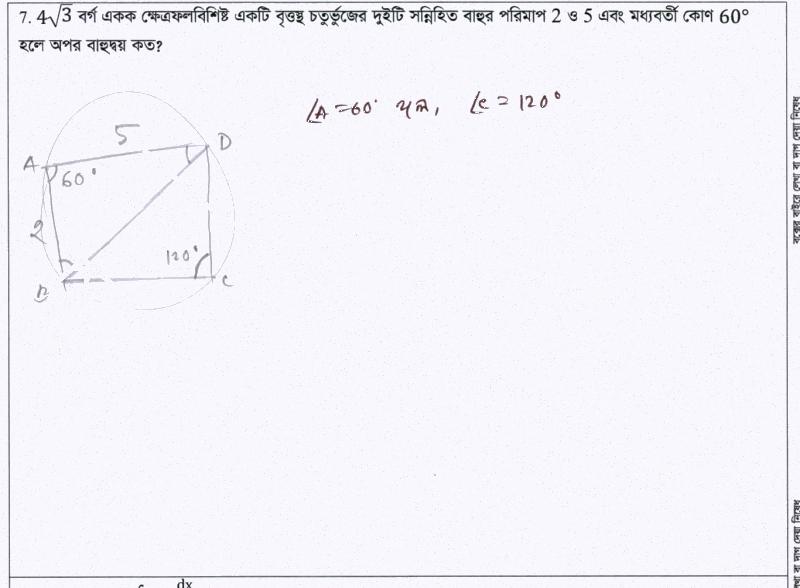 7. 4√3 বর্গ একক ক্ষেত্রফলবিশিষ্ট একটি বৃত্তস্থ চতুর্ভুজের দুইটি সন্নিহিত বাহুর পরিমাপ 2 ও 5 এবং মধ্যবর্তী কোণ 60°
হলে অপর বাহুদ্বয় কত?
∠A = 60° হলে, ∠C = 120°
5
A
D
60°
2
120°
B
C
dx
বক্সের বাইরে লেখা বা দাগ দেয়া নিষেধ
বা দাগ দেয়া নিষেধ